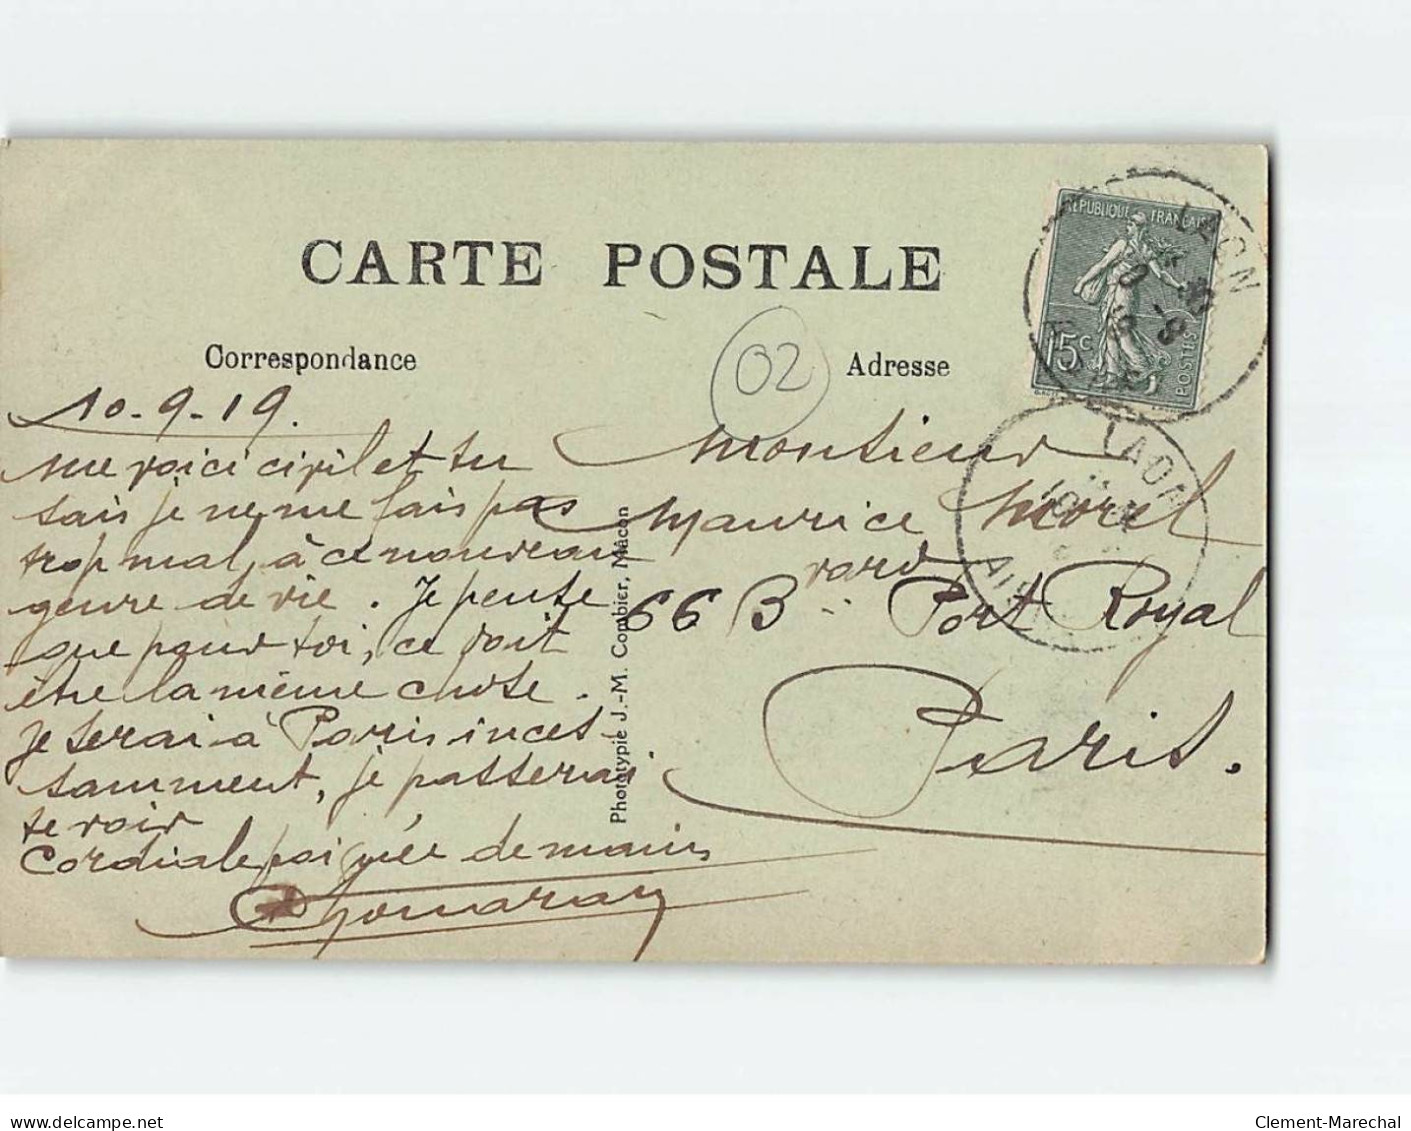 CARTE POSTALE
Correspondance
Adresse
02
REPUBLIQUE FRANÇAISE
15c
POSTES
LAON
LAON
AISNE
10-9-19.
me voici civil et tu
sais je ne me fais pas
trop mal, à ce nouveau
genre de vie. Je pense
que pour toi, ce doit
être la même chose.
Je serai à Paris inces
samment, je passerai
te voir
Cordiale poignée de mains
Monsieur
Maurice Morel
66 Bvard Port Royal
Paris.
Phototypie J.-M. Combier, Mâcon
delcampe.net
Clement-Marechal